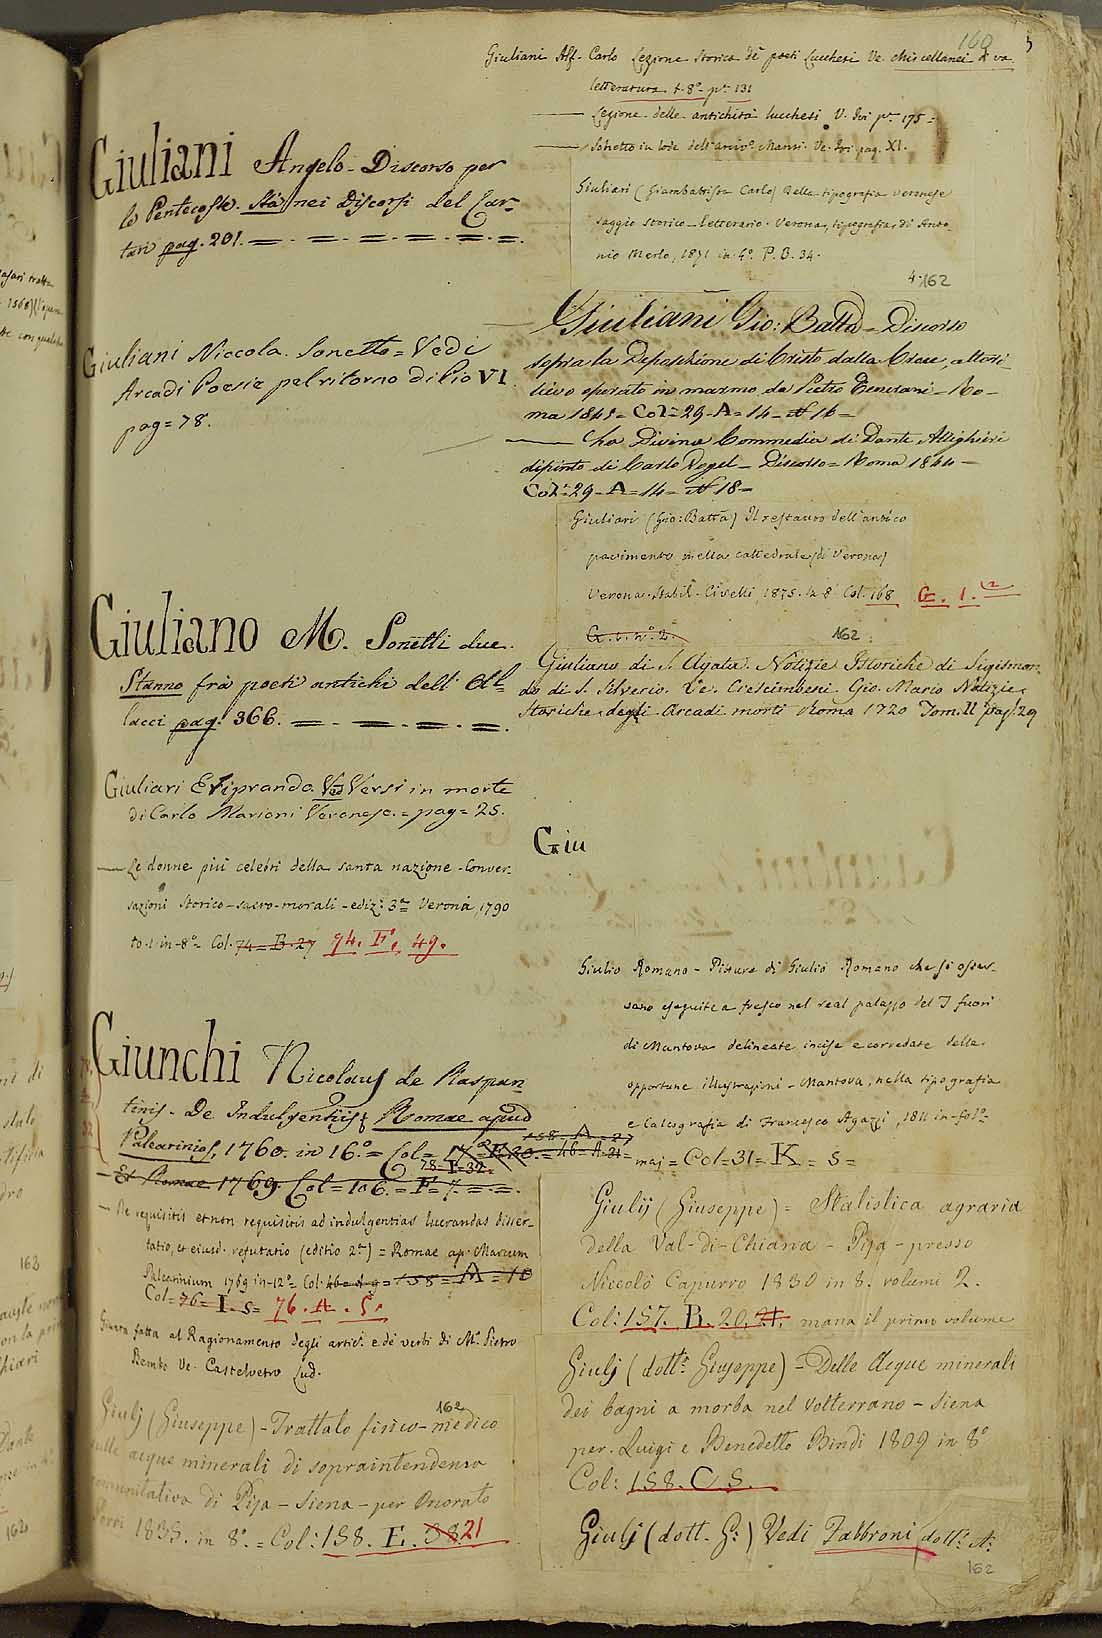 160
5
Giuliani Angelo - Discorso per
le Pentecoste. Stà nei Discorsi del Car-
tari pag. 201. = = = = = =.
Giuliani Niccola. Sonetto = Vedi
Arcadi Poesie pel ritorno di Pio VI
pag = 78.
Giuliano M. Sonetti due.
Stanno frà poeti antichi dell' All-
lacci pag. 366. = = = = =.
Giuliari Eriprando. Ved Versi in morte
di Carlo Marioni Veronese. = pag = 25.
— Le donne più celebri della santa nazione - Conver-
sazioni Storico-sacro-morali - ediz: 3ª Verona, 1790
to. 1. in-8º= Col. 74 = B. 27 94. F. 49.
Giunchi Nicolaus de Raspan
tinis - De Indulgentiis; Romae apud
Palearinios, 1760. in 16.º = Col = 46 = A. 21 =
158 = A = 27
78 = I = 32.
— Et Romae 1769. Col = 106. = F = 7. = = =.
— De requisitis et non requisitis ad indulgentias lucrandas disser-
tatio, et eiusd. refutatio (editio 2ª) = Romae ap. Marcum
Palearinium 1769 in-12º = Col: 46 = A 9 = 158 = A = 10
Col = 76 = I. 5= 76. A. 5.
Giunta fatta al Ragionamento degli artic. e de verbi di Mr. Pietro
Bembo Ve. Castelvetro Lud.
162
Giulj (Giuseppe) - Trattato fisico-medico
sulle acque minerali di sopraintendenza
comunitativa di Pisa - Siena - per Onorato
Porri 1835. in 8º. = Col: 158. E. 38 21
Giuliani Alf. Carlo Lezione storica di poeti Lucchesi Ve. Miscellanei di va
letteratura t. 8º pº 131
— Lezione delle antichità lucchesi V. Ivi pº 175 =
— Sonetto in lode dell' arciv. Mansi. Ve. Ivi pag. XI.
Giuliari (Giambattista Carlo) Della tipografia Veronese
saggio storico-letterario. Verona, tipografia di Anto
nio Merlo, 1871 in 4º. P. B. 34.
4. 162
Giuliani Gio: Batta = Discorso
sopra la Deposizione di Cristo dalla Croce, altori-
lievo operato in marmo da Pietro Tenerani = Ro-
ma 1845 = Col = 29 - A = 14 = Nº 16 =
— La Divina Commedia di Dante Allighieri
dipinto di Carlo Vogel = Discorso = Roma 1844 =
Col = 29 = A = 14 = Nº 18 =
Giuliari (Gio: Batta) Il restauro dell' antico
pavimento nella cattedrale di Verona,
Verona. Stabil. Civelli, 1875. in 8º Col. 168 G. 1. 2
G. 1. nº 2.
162
Giuliano di S. Agata. Notizie Istoriche di Sigismon-
do di S. Silverio. Ve. Crescimbeni Gio. Mario Notizie
Storiche degli Arcadi morti Roma 1720 Tom. II pag. 29
Giu
Giulio Romano - Pitture di Giulio Romano che si osser-
vano eseguite a fresco nel real palazzo del T fuori
di Mantova delineate incise e corredate delle
opportune illustrazioni - Mantova, nella tipografia
e Calcografia di Francesco Agazzi, 1811 in-folº
maj = Col = 31 = K = 5 =
Giulij (Giuseppe) = Statistica agraria
della Val-di-Chiana - Pisa - presso
Niccolò Capurro 1830 in 8. volumi 2.
Col: 157. B. 20, 21. manca il primo volume
Giulj (dottr. Giuseppe) = Delle Acque minerali
dei bagni a morba nel volterrano - Siena
per. Luigi e Benedetto Bindi 1809 in 8º
Col: 158. C 5.
Giulj (dott. G:) Vedi Fabbroni dott: A:
162